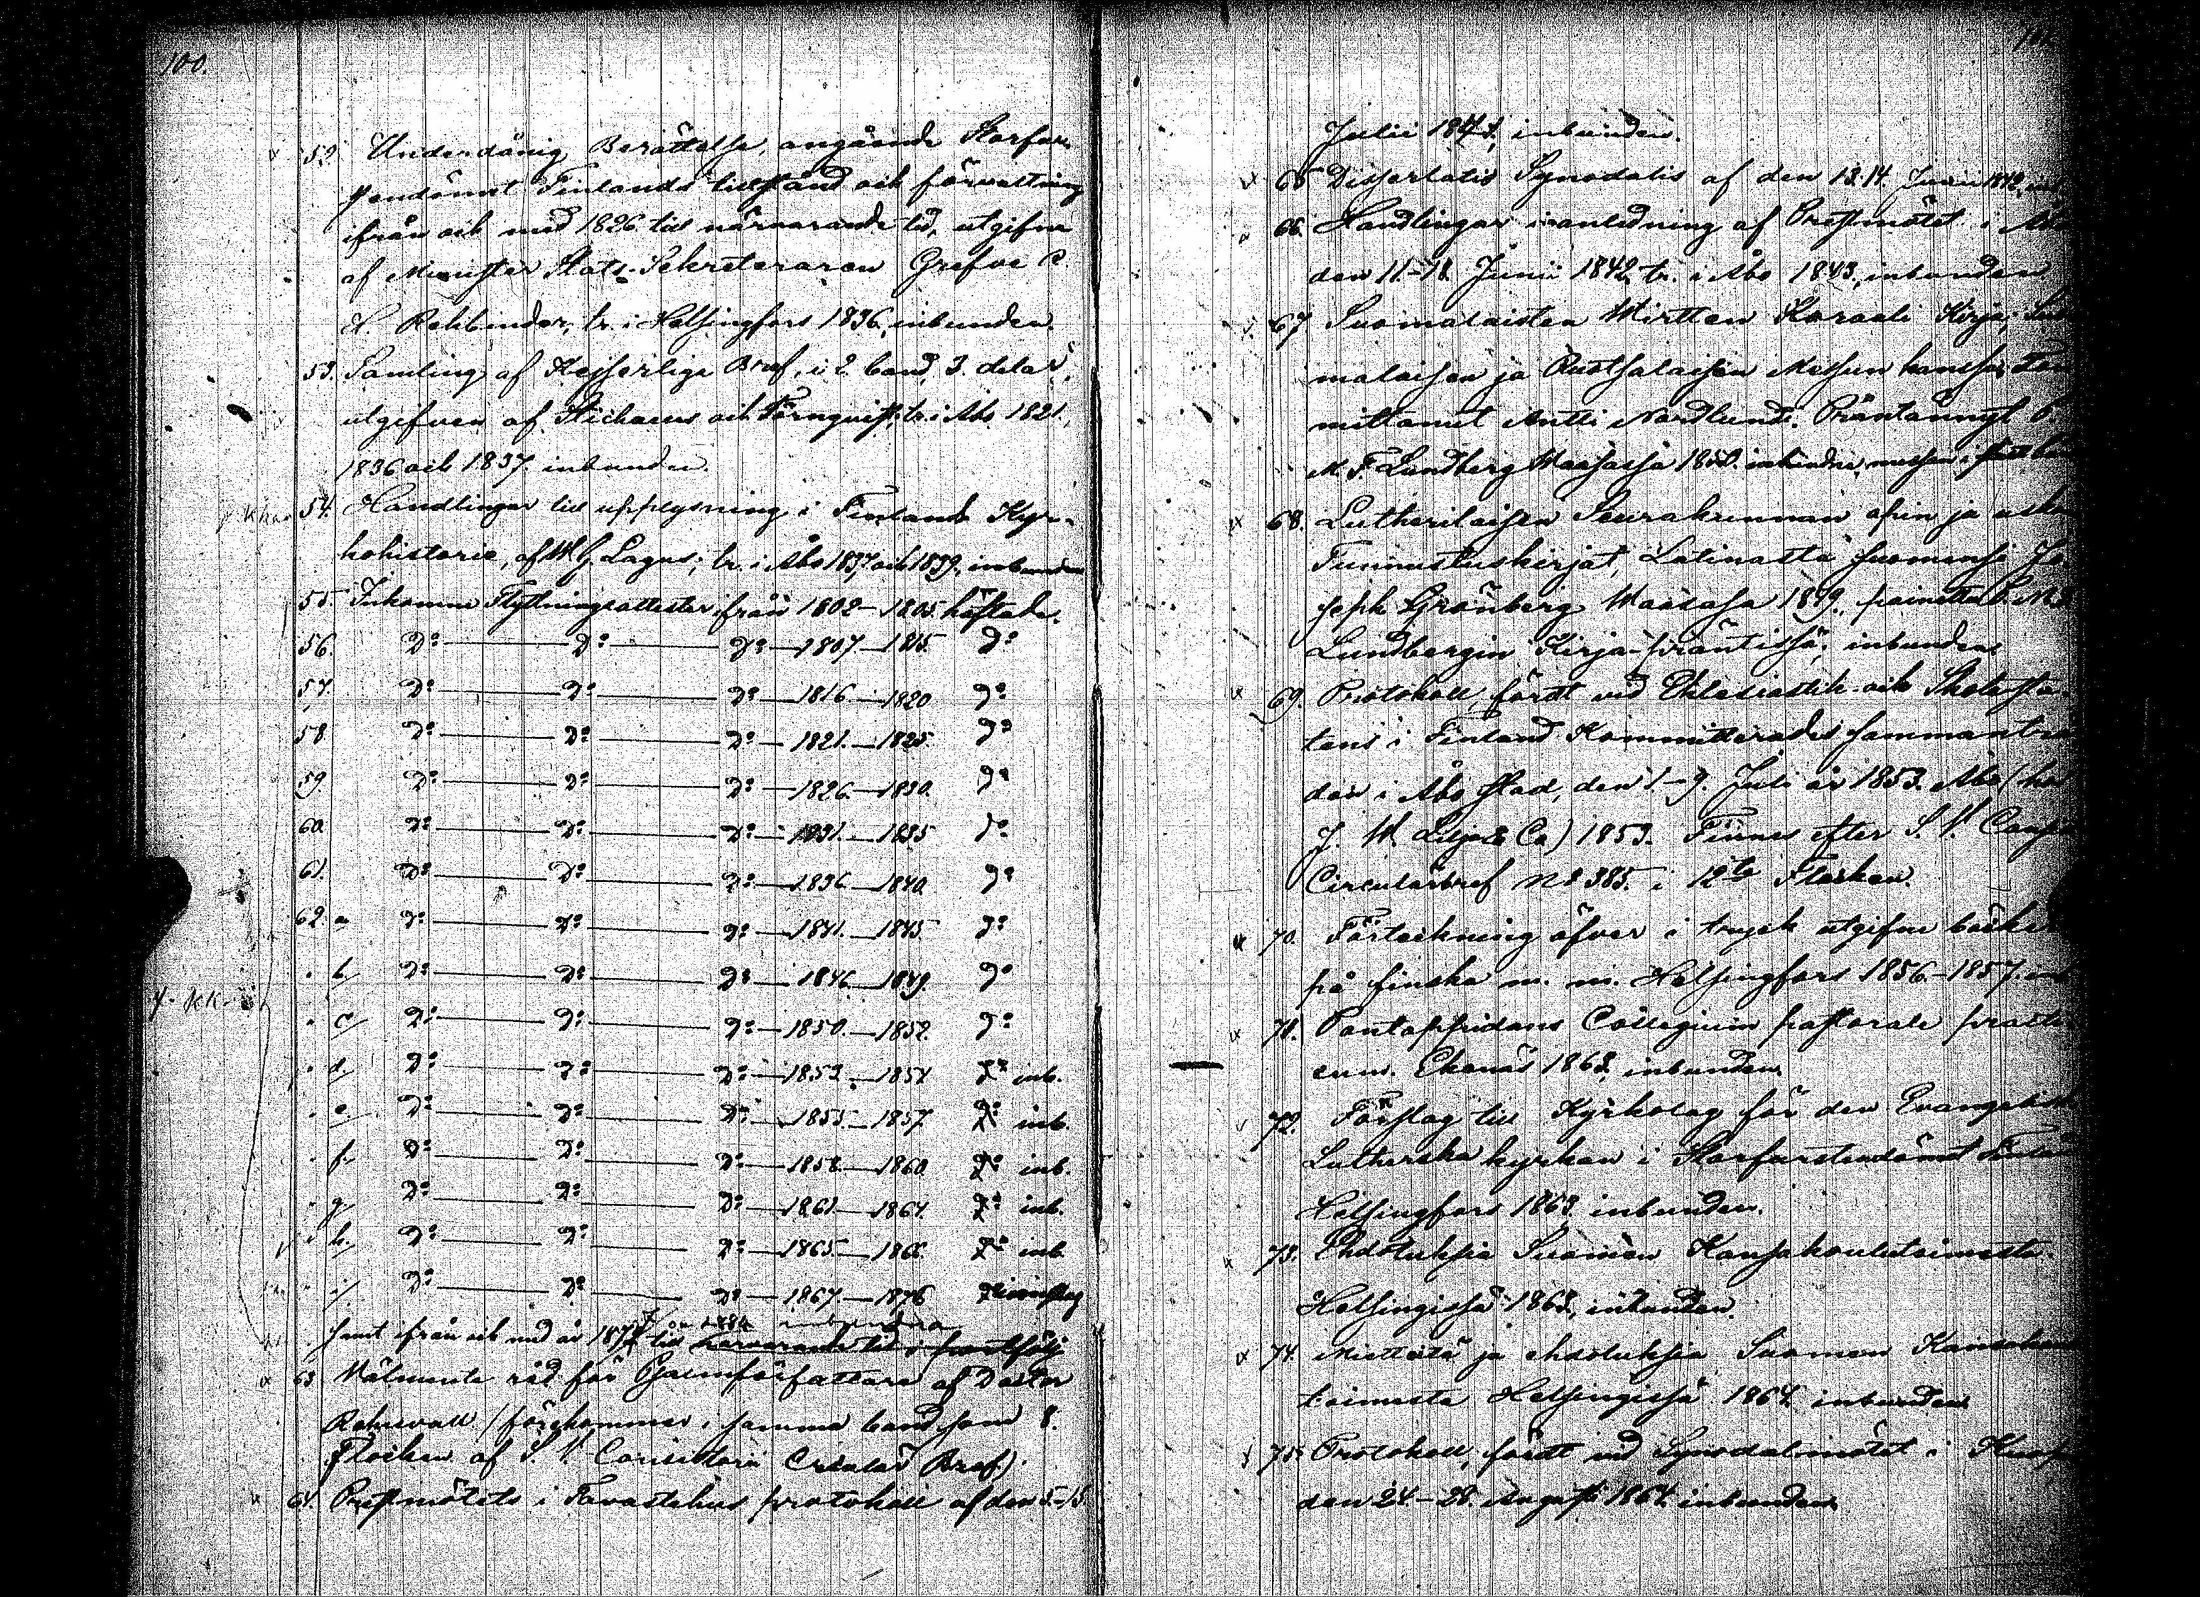 100.
52. Underdånig Berättelse, angående Storfur-
stendömet Finlands tillstånd och förvaltning
ifrån och med 1826 till närvarande tid, utgifven
af Minister Stats-Sekreteraren Grefve
Rehbinder, tr. i Helsingfors 1836, inbunden.
53. Samling af Kejserliga Bref, i 2 band, 3 delar,
utgifven af Stichaeus och Törnqvist, tr. i Åbo 1821,
1836 och 1837 inbunden.
54. Handlingar till upplysning i Finlands Kyr-
kohistorie, af W. G. Lagus; tr. i Åbo 1837 och 1839, inbunden
55. Inkomne Flyttningsattester från 1802–1805 häftade.
56. Do Do Do 1807–1815 Do
57. Do Do Do 1816–1820 Do
58 Do Do Do 1821–1825 Do
59 Do Do Do 1826–1830. Do
60 Do Do Do 1831–1835 Do
61. Do Do Do 1836–1840 Do
62. a Do Do Do 1841–1845 Do
" b Do Do Do 1846–1849 Do
" c Do Do Do 1850–1852 Do
" d Do Do Do 1853–1854 Do inb.
" e Do Do Do 1855–1857 Do inb.
" f Do Do Do 1858–1860 Do inb.
" g Do Do Do 1861–1864 Do inb.
" h Do Do Do 1865–1866 Do inb
" i Do Do Do 1867–1876
samt ifrån och med år till närvarande tid i portfölj
63 Välmente råd för Psalmförfattare af Doctor
Rohrwall (förekommer i samma band som 8.
Flocken af S. V. Consistorii Circulär Bref)
64. Prestmötets i Tavastehus protokoll af den 5–15
Julii inbunden.
65 Dissertatio Synodalis af den 13. 14. Junii 1842,
66. Handlingar i anledning af Prestmötet i Åbo
den 11–18 Junii 1842, tr. i Åbo 1843, inbunden
67 Suomalaisten Wirtten Koraali Kirja; Suo
malaisen ja Ruotsalaisen Messun kanssa,
mittanut Antti Nordlund. Präntännyt
Lundberg Waasassa 1850. inbunden,
68. Lutherilaisen Seurakunnan opin ja uskon
Tunnustuskirjat, Latinasta suomensi Jo
seph Grönberg Waasasa 1849. painettu
Lundbergin Kirja-präntissä; inbunden
69. Protokoll, fördt vid Eklesiastik- och Skolsta-
tens i Finland Kommitterades samman
der i Åbo stad, den 1–9. Juli år 1853. Åbo (hos
J. W. Lilja & Co) 1853. Finnes efter S. V. Consis
Circulärbref No 385. i 12te Flocken.
70. Förteckning öfver i tryck utgifne böcker
på finska m. m. Helsingfors 1856–1857.
71. Pontoppidans Collegium pastorale practi
cum. Ekenäs 1863, inbunden
72. Förslag till Kyrkolag för den Evangelisk
Lutherska kyrkan i Storfurstendömet Finland
Helsingfors 1863, inbunden.
73. Ehdotuksia Suomen Kansakoulutoimesta.
Helsingissä 1863, inbunden
74. Mietteitä ja ehdotuksia Suomen Kansakoulu
toimesta Helsingissä 1864 inbunden
75. Protokoll, fördt vid Synodalmötet i Kuopio
den 24–28. Augusti 1864. inbunden